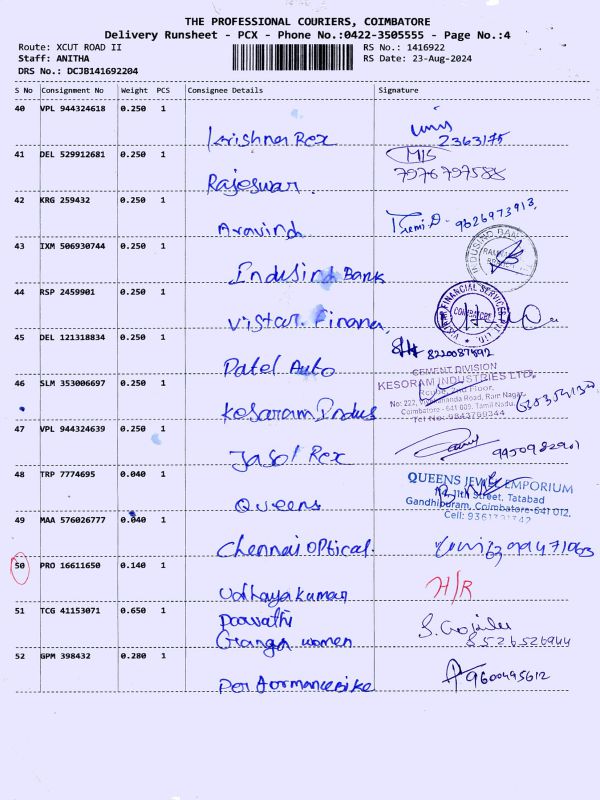 THE PROFESSIONAL COURIERS, COIMBATORE
Delivery Runsheet - PCX - Phone No.:0422-3505555 - Page No.:4
Route: XCUT ROAD II RS No.: 1416922
Staff: ANITHA RS Date: 23-Aug-2024
DRS No.: DCJB141692204
S No Consignment No Weight PCS Consignee Details Signature
40 VPL 944324618 0.250 1
Krishna Rex 2363175
41 DEL 529912681 0.250 1 M/S
Rajeswar. 7976797588
42 KRG 259432 0.250 1
Aravind 9826973913
43 IXM 506930744 0.250 1
Indusind Bank
44 RSP 2459901 0.250 1
Vistar. Finance
45 DEL 121318834 0.250 1
Patel Auto 8220087892
46 SLM 353006697 0.250 1 CEMENT DIVISION
KESORAM INDUSTRIES LTD.
No: 222, Road, Ram Nagar,
Kesaram Indus Coimbatore - 641 009. Tamil Nadu
47 VPL 944324639 0.250 1
Jasol Rex
48 TRP 7774695 0.040 1 QUEENS JEWEL EMPORIUM
11th Street, Tatabad
Queens Gandhipuram, Coimbatore-641 012.
49 MAA 576026777 0.040 1 Cell:
Chennai Optical.
50 PRO 16611650 0.140 1
Udhayakumar H/R
51 TCG 41153071 0.650 1 Poovathi
Ganga women 8526526944
52 GPM 398432 0.280 1
Performance Bike 9600495612